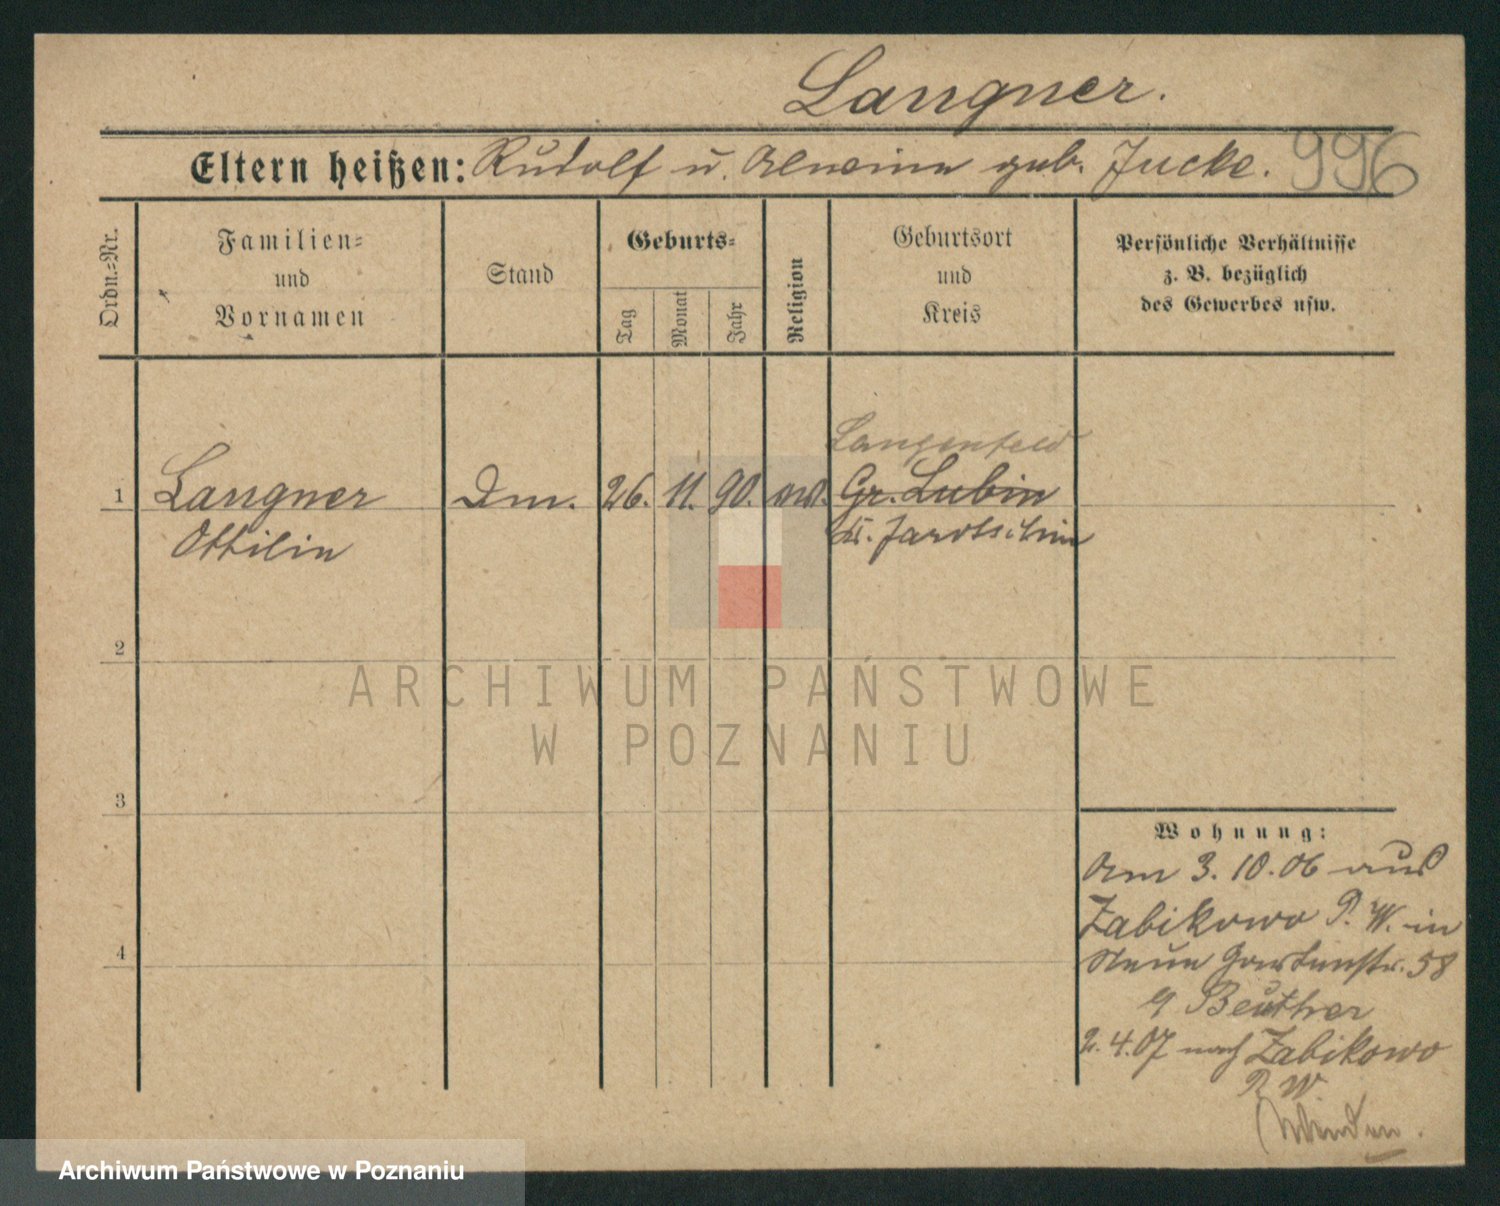 Langner.
Eltern heißen: Rudolf u. Alwine geb. Jucke. 996
Ordn.=Nr.
Familien=
und
Vornamen
Stand
Geburts=
Tag
Monat
Jahr
Religion
Geburtsort
und
Kreis
Persönliche Verhältnisse
z. B. bezüglich
des Gewerbes usw.
Langenfeld
1 Langner Dm. 26. 11. 90. Gr. Lubin
Ottilie Kr. Jarotschin
2
ARCHIWUM PAŃSTWOWE
W POZNANIU
3
Wohnung:
Am 3. 10. 06 aus
Zabikowo P. W. in
4
Neue Gartenstr. 58
Beuther
2. 4. 07 nach Zabikowo
P W
Archiwum Państwowe w Poznaniu